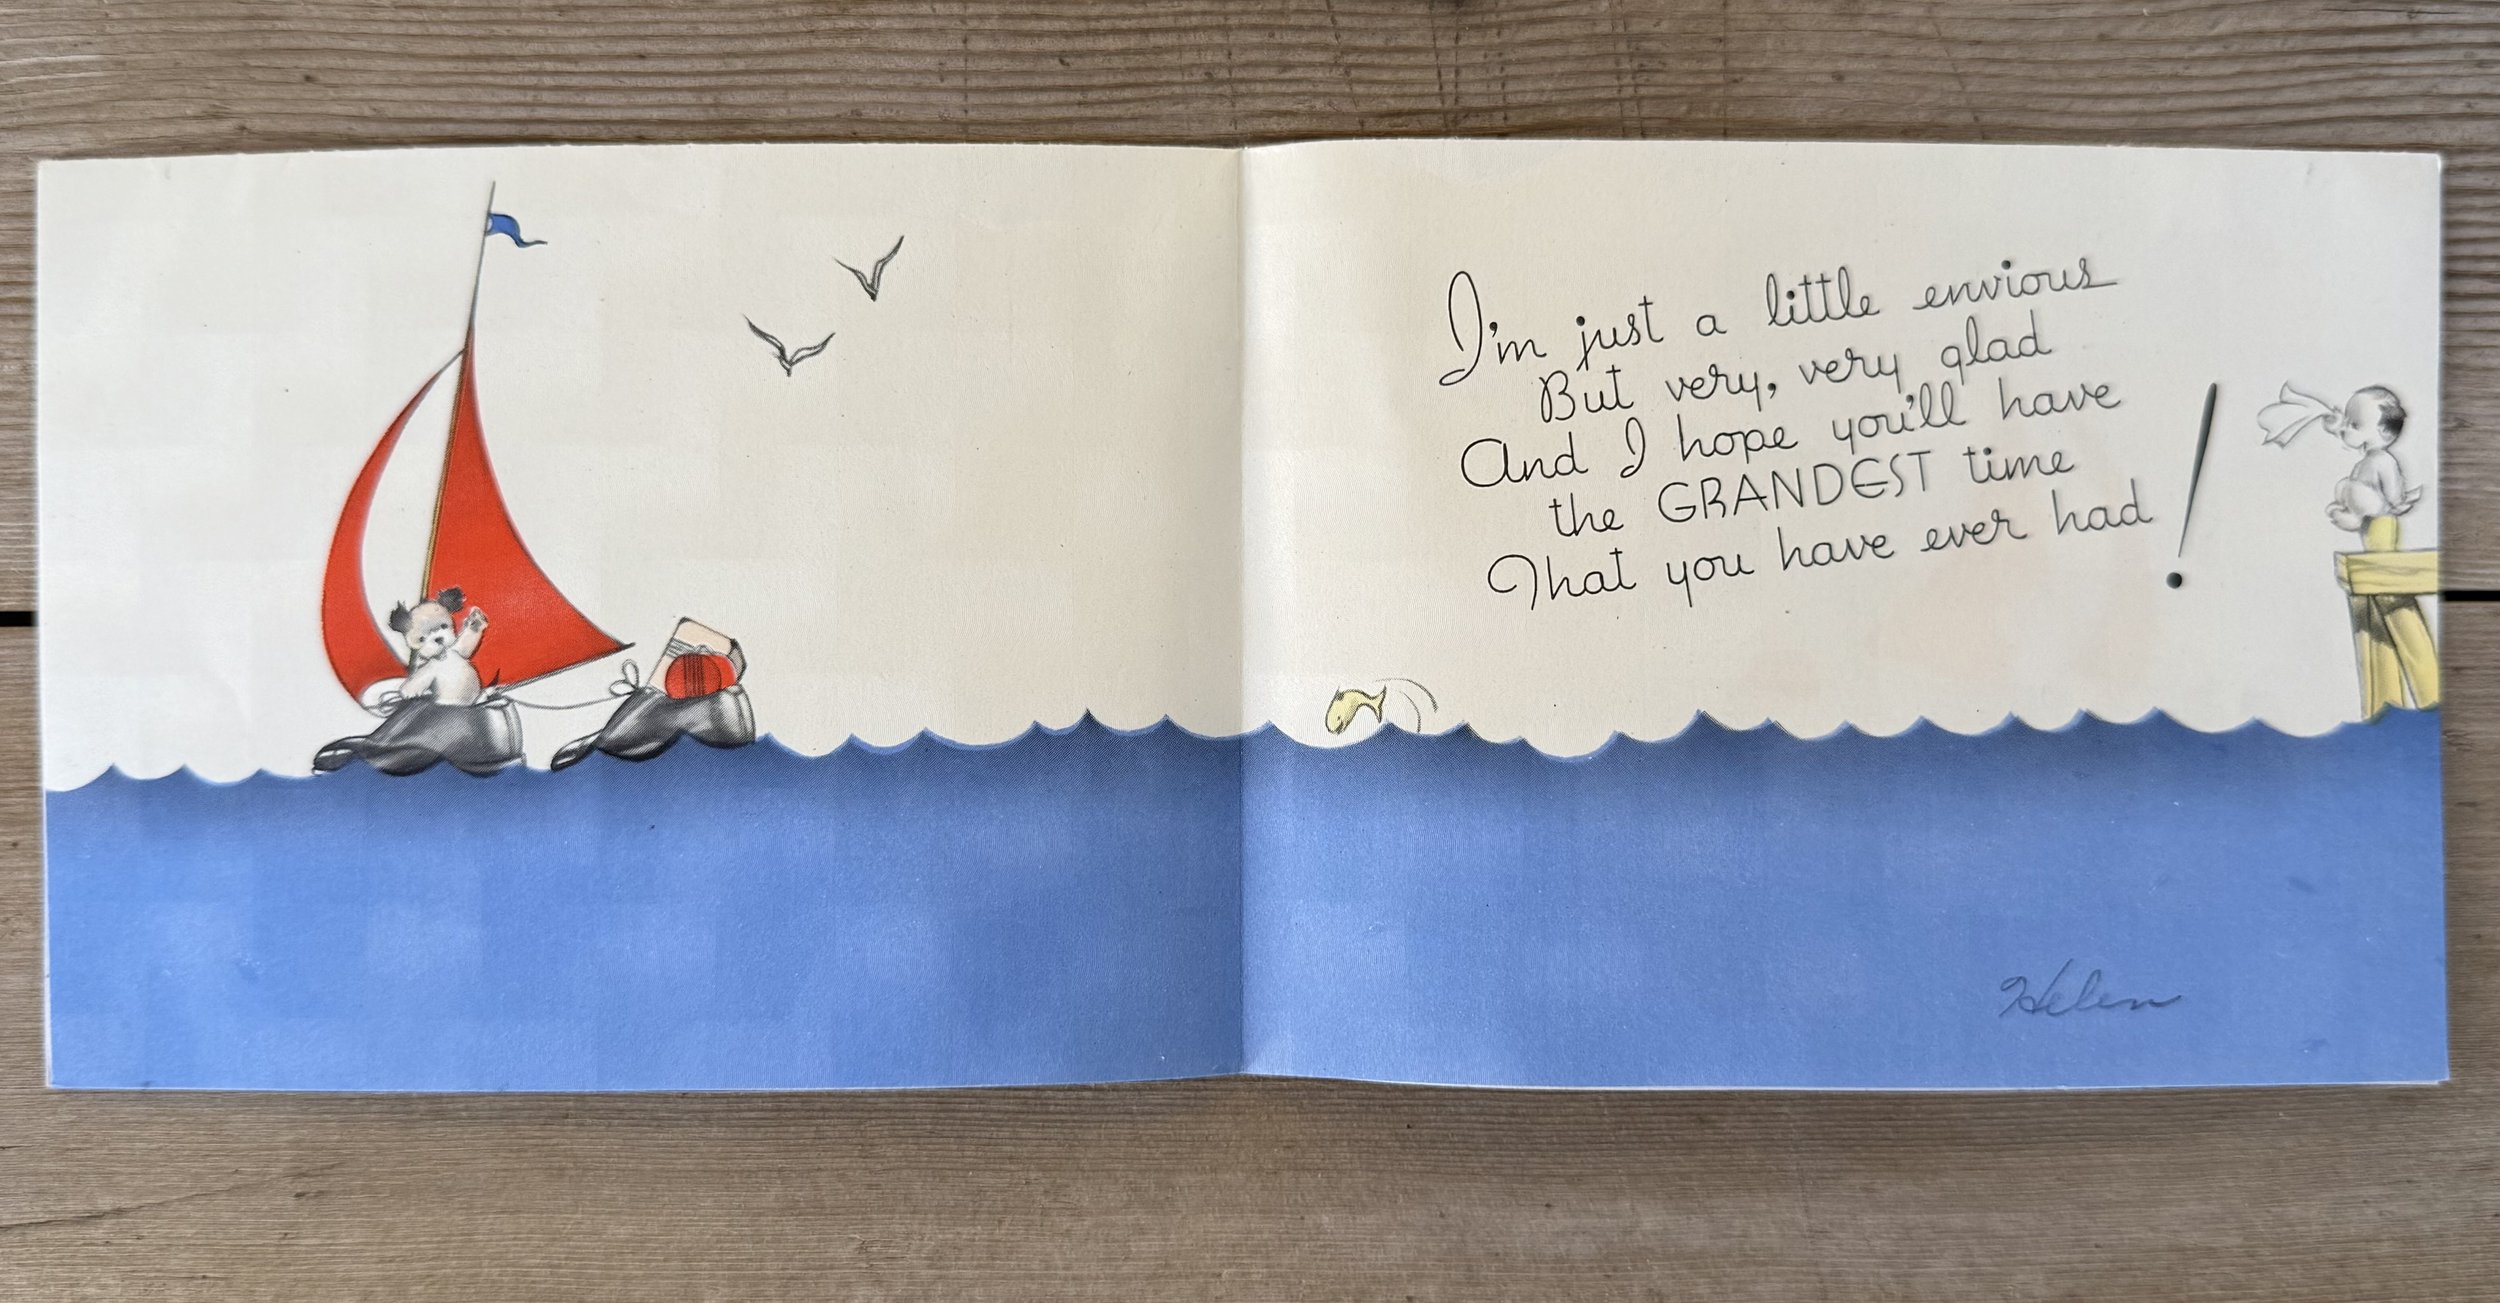 I'm just a little envious
But very, very glad
And I hope you'll have
the GRANDEST time
That you have ever had!
Helen